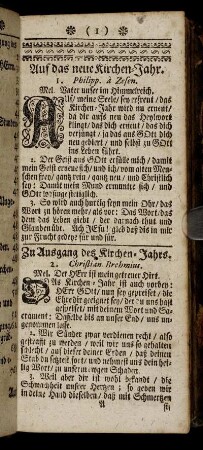 ( 1 )
Auf das neue Kirchen-Jahr.
1. Philipp. à Zesen.
Mel. Vater unser im Himmelreich.
AUf, meine Seele, sey erfreut, das
Kirchen-Jahr wird nu erneut,
da dir aufs neu das Heylwort
klingt, das dich erneut, das dich
verjüngt, ja das aus GOtt dich
neu gebiert, und selbst zu GOtt
ins Leben führt.
2. Der Geist aus GOtt er fülle mich, damit
mein Geist erneue sich, und ich, vom alten Men-
schen frey, gantz rein, gantz neu, und Christlich
sey: Damit mein Mund ermuntre sich, und
GOtt lobsinge stetiglich.
3. So wird auch hurtig seyn mein Ohr, das
Wort zu hören mehr, als vor: Das Wort, das
dem das Leben giebt, der darnach thut und
Glauben übt. Ach JEsu! gieb daß dis in mir
zur Frucht gedeye für und für.
Zu Ausgang des Kirchen-Jahrs.
2. Christian Brehmius.
Mel. Der HErr ist mein getreuer Hirt.
DAs Kirchen-Jahr ist auch vorbey,
HErr GOtt, nun sey gepreiset, die
Ehre dir geeignet sey, der du uns hast
gespeiset, mit deinem Wort und Sa-
crament: Dasselbe bis an unser End, uns un-
genommen lasse.
2. Wir Sünder zwar verdienen recht, also
gestrafft zu werden, weil wir uns so gehalten
schlecht, auf dieser deiner Erden, daß deinen
Stab du setztest fort, und nehmest uns dein heilig
Wort, zu unserm ewgen Schaden.
3. Weil aber dir ist wohl bekandt, die
Schwachheit unsrer Hertzen; so geben wir
in deine Hand dieselben, daß mit Schmertzen
A
sie